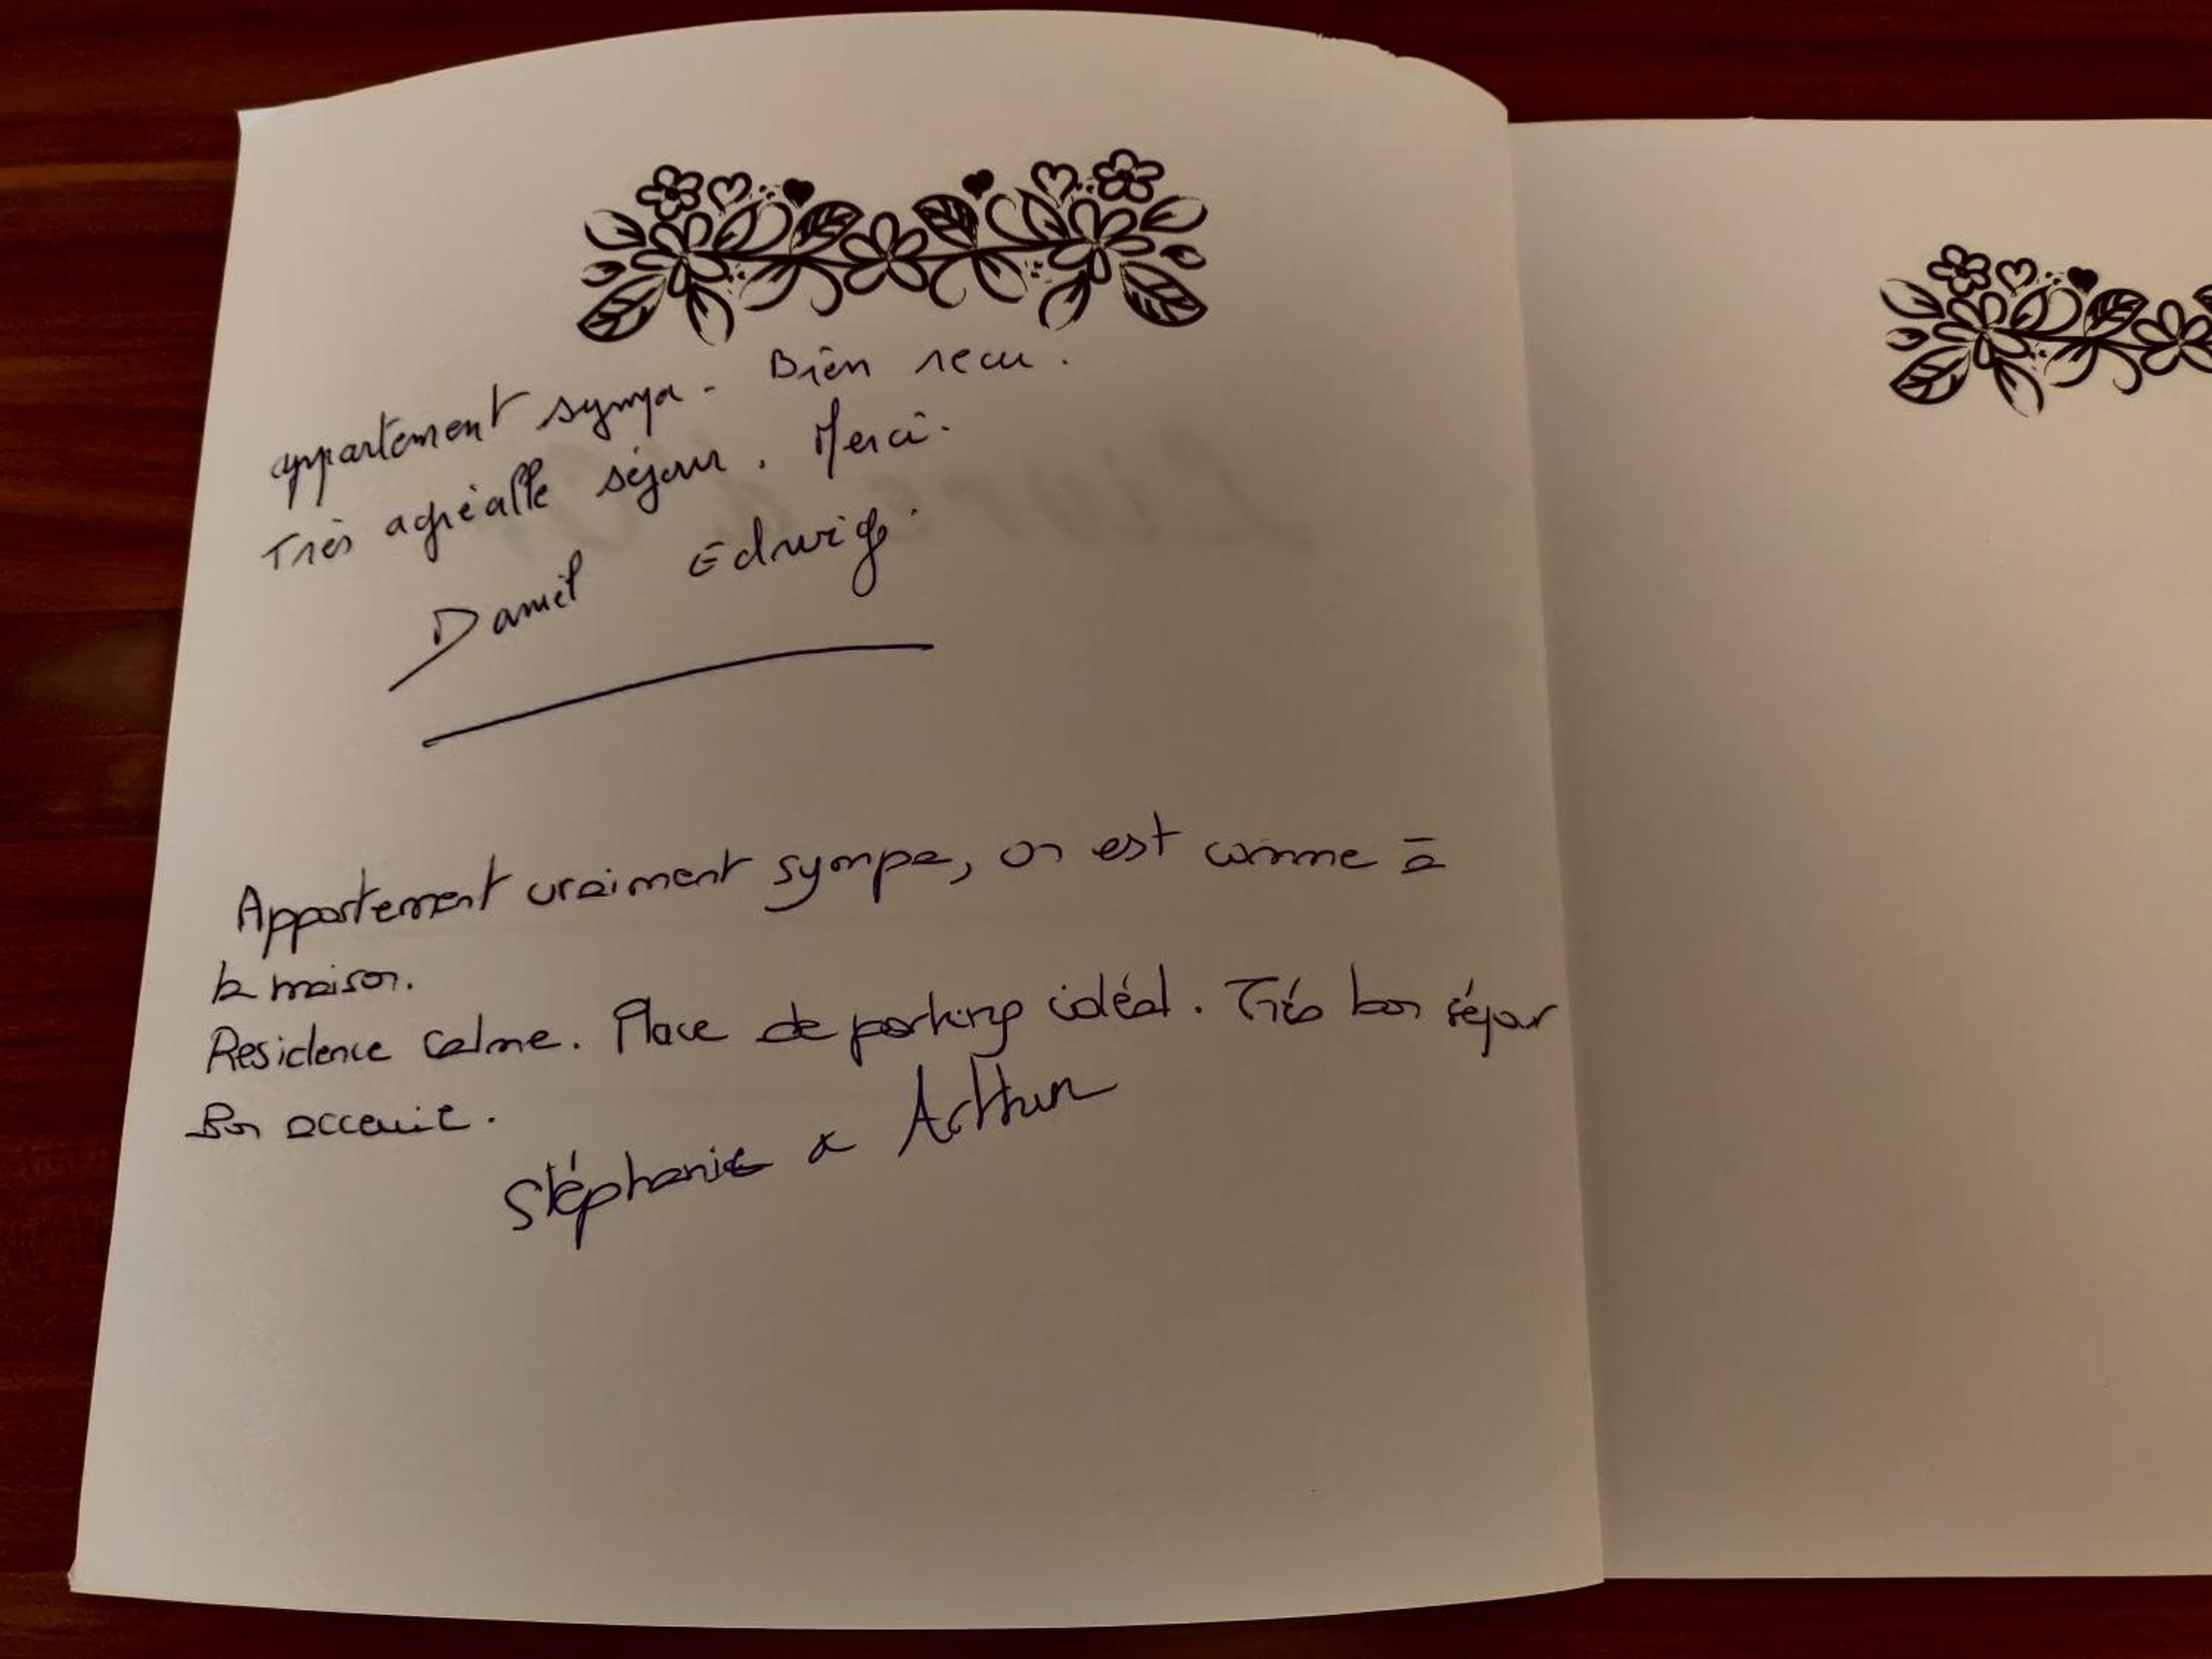 appartement sympa - Bien recu.
Très agréable séjour. Merci.
Daniel Edwige.
Appartement vraiment sympa, on est comme à
la maison.
Residence calme. Place de parking idéal. Très bon séjour
Bon acceuil.
Stéphanie & Arthur